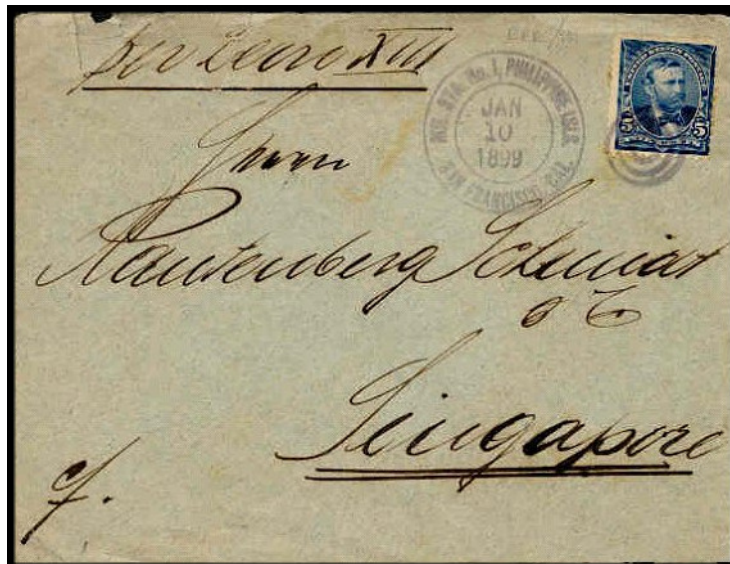 per Leon XIII
MIL. STA. No. 1, PHILIPPINE ISLS.
JAN
10
1899
SAN FRANCISCO, CAL.
5 5
Herrn
Rautenberg Schmidt
& C
Singapore